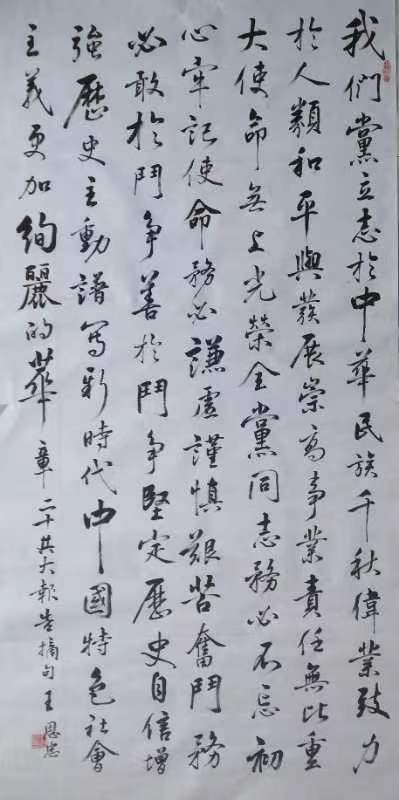 我們黨立志於中華民族千秋偉業致力
於人類和平與發展崇高事業責任無比重
大使命無上光榮全黨同志務必不忘初
心牢記使命務必謙虛謹慎艱苦奮鬥務
必敢於鬥爭善於鬥爭堅定歷史自信增
強歷史主動譜寫新時代中國特色社會
主義更加絢麗的華章二十大報告摘句王恩忠